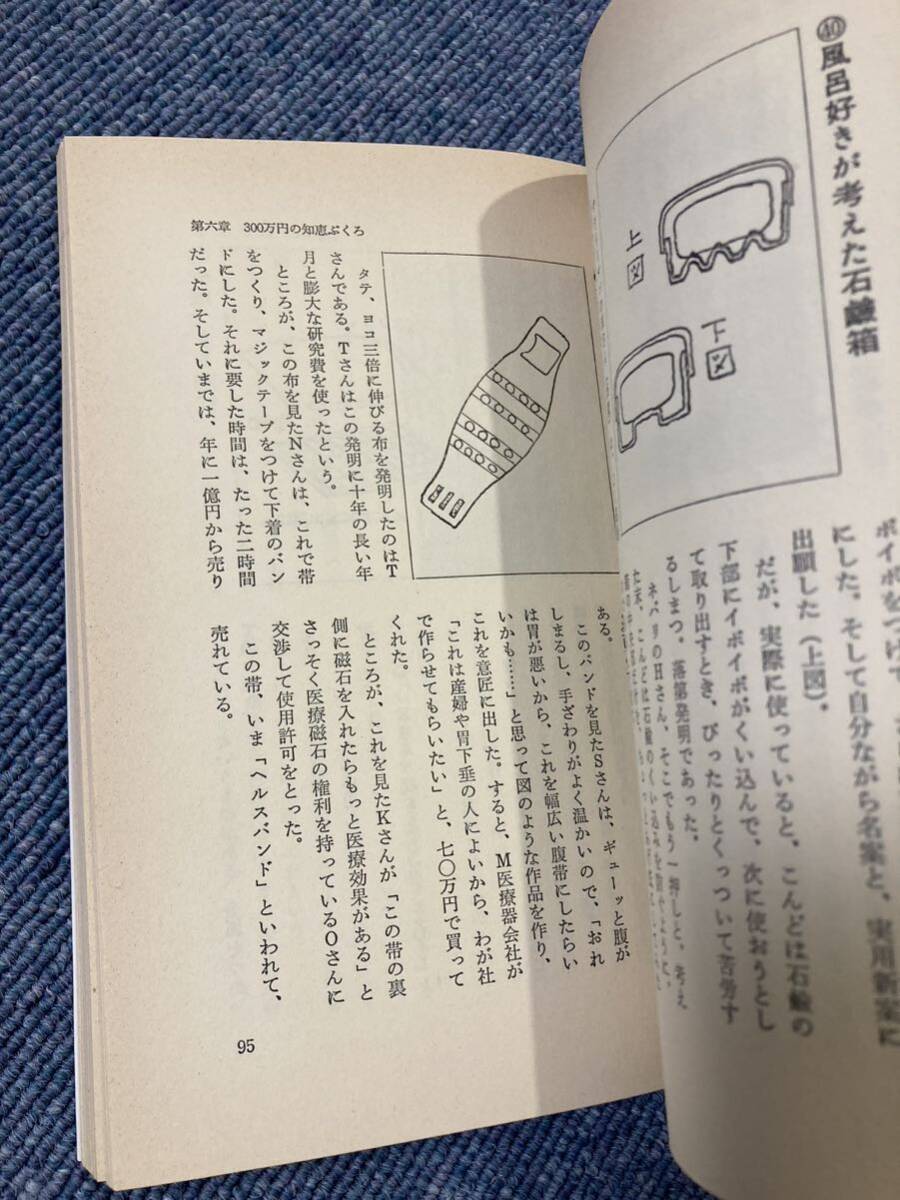 ㊵風呂好きが考えた石鹸箱
上図
下図
ボイボをつけて
にした。そして自分ながら名案と、実用新案に
出願した（上図）。
だが、実際に使っていると、こんどは石鹸の
下部にイボイボがくい込んで、次に使おうとし
て取り出すとき、ぴったりとくっついて苦労す
るしまつ。落第発明であった。
ネバリのHさん、そこでもう一押しと、考え
第六章　300万円の知恵ぶくろ
タテ、ヨコ三倍に伸びる布を発明したのはT
さんである。Tさんはこの発明に十年の長い年
月と膨大な研究費を使ったという。
ところが、この布を見たNさんは、これで帯
をつくり、マジックテープをつけて下着のバン
ドにした。それに要した時間は、たった二時間
だった。そしていまでは、年に一億円から売り
ある。
このバンドを見たSさんは、ギューッと腹が
しまるし、手ざわりがよく温かいので、「おれ
は胃が悪いから、これを幅広い腹帯にしたらい
いかも……」と思って図のような作品を作り、
これを意匠に出した。すると、M医療器会社が
「これは産婦や胃下垂の人によいから、わが社
で作らせてもらいたい」と、七〇万円で買って
くれた。
ところが、これを見たKさんが「この帯の裏
側に磁石を入れたらもっと医療効果がある」と
さっそく医療磁石の権利を持っているOさんに
交渉して使用許可をとった。
この帯、いま「ヘルスバンド」といわれて、
売れている。
95